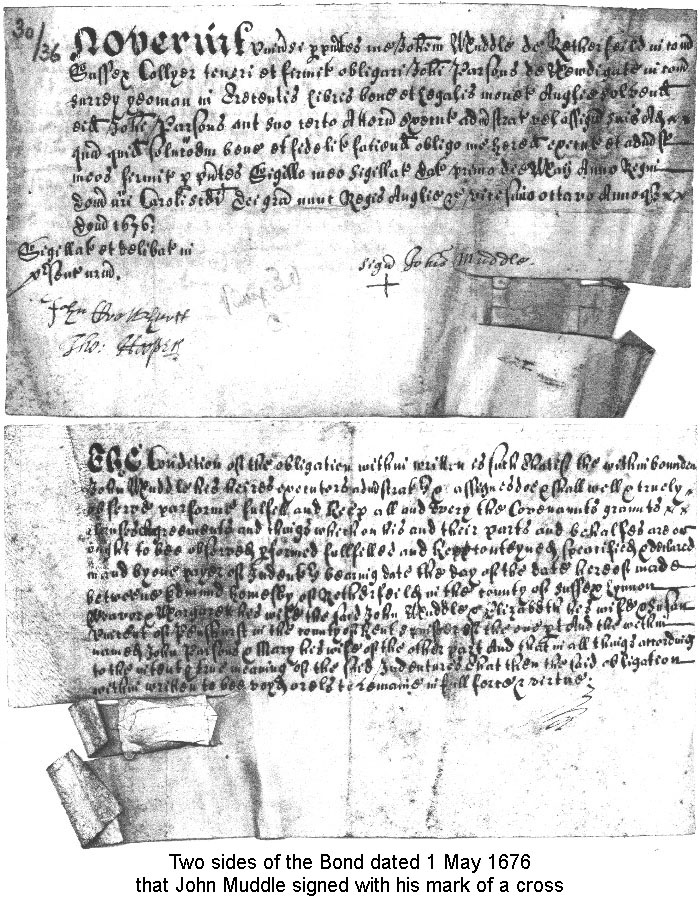 30/36
Noverint univsi p pntes me Johem Muddle de Retherfeild in com
Sussex Collyer teneri et firmit obligari Johi Parsons de Newdigate in com
Surrey yeoman in libris bone et legalis monet Anglie solvend
eid Johi Parsons aut suo certo Attorn execut admstrat vel assign suis Ad
qua quid soluccoem bene et fidelit faciend obligo me hered execut et admstr
meos firmit p pntes Sigillo meo sigillat dat primo die May Anno Regni
dom nri Caroli scdi dei gra nunc Regis Anglie &c vicesimo octavo Annoq
dom 1676
Sigillat et delibat in
psent mrm.
sign Johis Muddle
John
Tho: Hooper
The Condition of the obligation within written is such that if the within bounden
John Muddle his heires executors admstrat & assignes doe & shall well & truely
observe performe fulfill and keep all and every the Covenants graunts
clauses agreements and things which on his and their parts and behalfes are or
ought to bee observed pformed fullfilled and kept conteyned specified & declared
in and by one payer of Indent bearing date the day of the date hereof made
betweene Edmund Homesby of Retherfeild in the county of Sussex Lynnon
Weavor & Margarett his wife the said John Muddle & Elizabeth his wife & Susan
Vincent of Penshurst in the county of Kent spinster of the one pt And the within
named John Parsons & Mary his wife of the other part And that in all things according
to the intent & true meaning of the said Indentures that then the said obligation
within written to bee voyd or els to remaine in full force & virtue
Two sides of the Bond dated 1 May 1676
that John Muddle signed with his mark of a cross